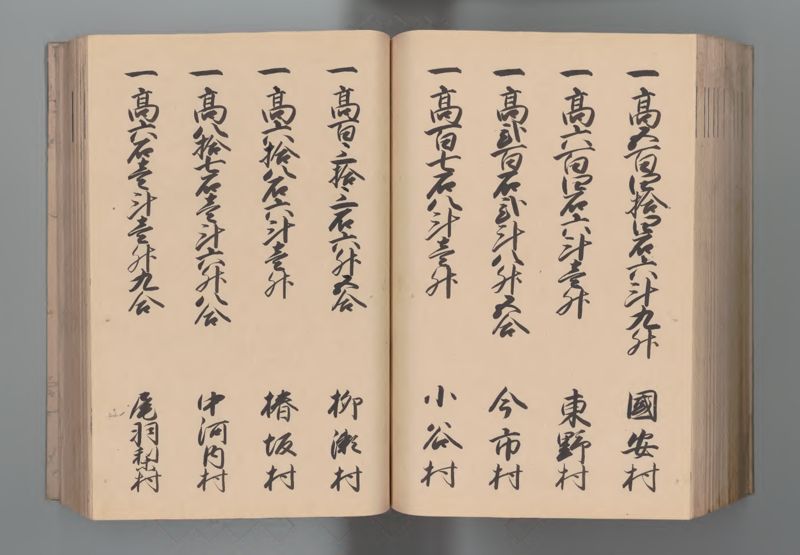 一高五百四拾四石六斗九升 國安村
一高六百四石六斗壱升 東野村
一高弐百石弐斗八升五合 今市村
一高百七石八斗壱升 小谷村
一高百三拾三石六升五合 柳瀬村
一高六拾八石六斗壱升 椿坂村
一高八拾七石壱斗六升八合 中河内村
一高六石壱斗壱升九合 尾羽梨村